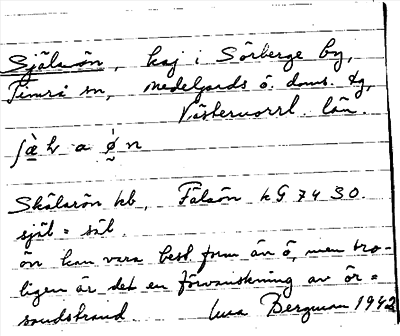 Själarön, kaj i Sörberge by,
Timrå sn, Medelpads ö. doms. tg,
Västernorrl. län.
ʃæ̀l a ǿ n
Skälarön kb, Fälöön kG 74 SO.
själ = säl.
ön kan vara best. form än ö, men tro-
ligen är det en förvanskning av ör =
sandstrand Bergman 1942